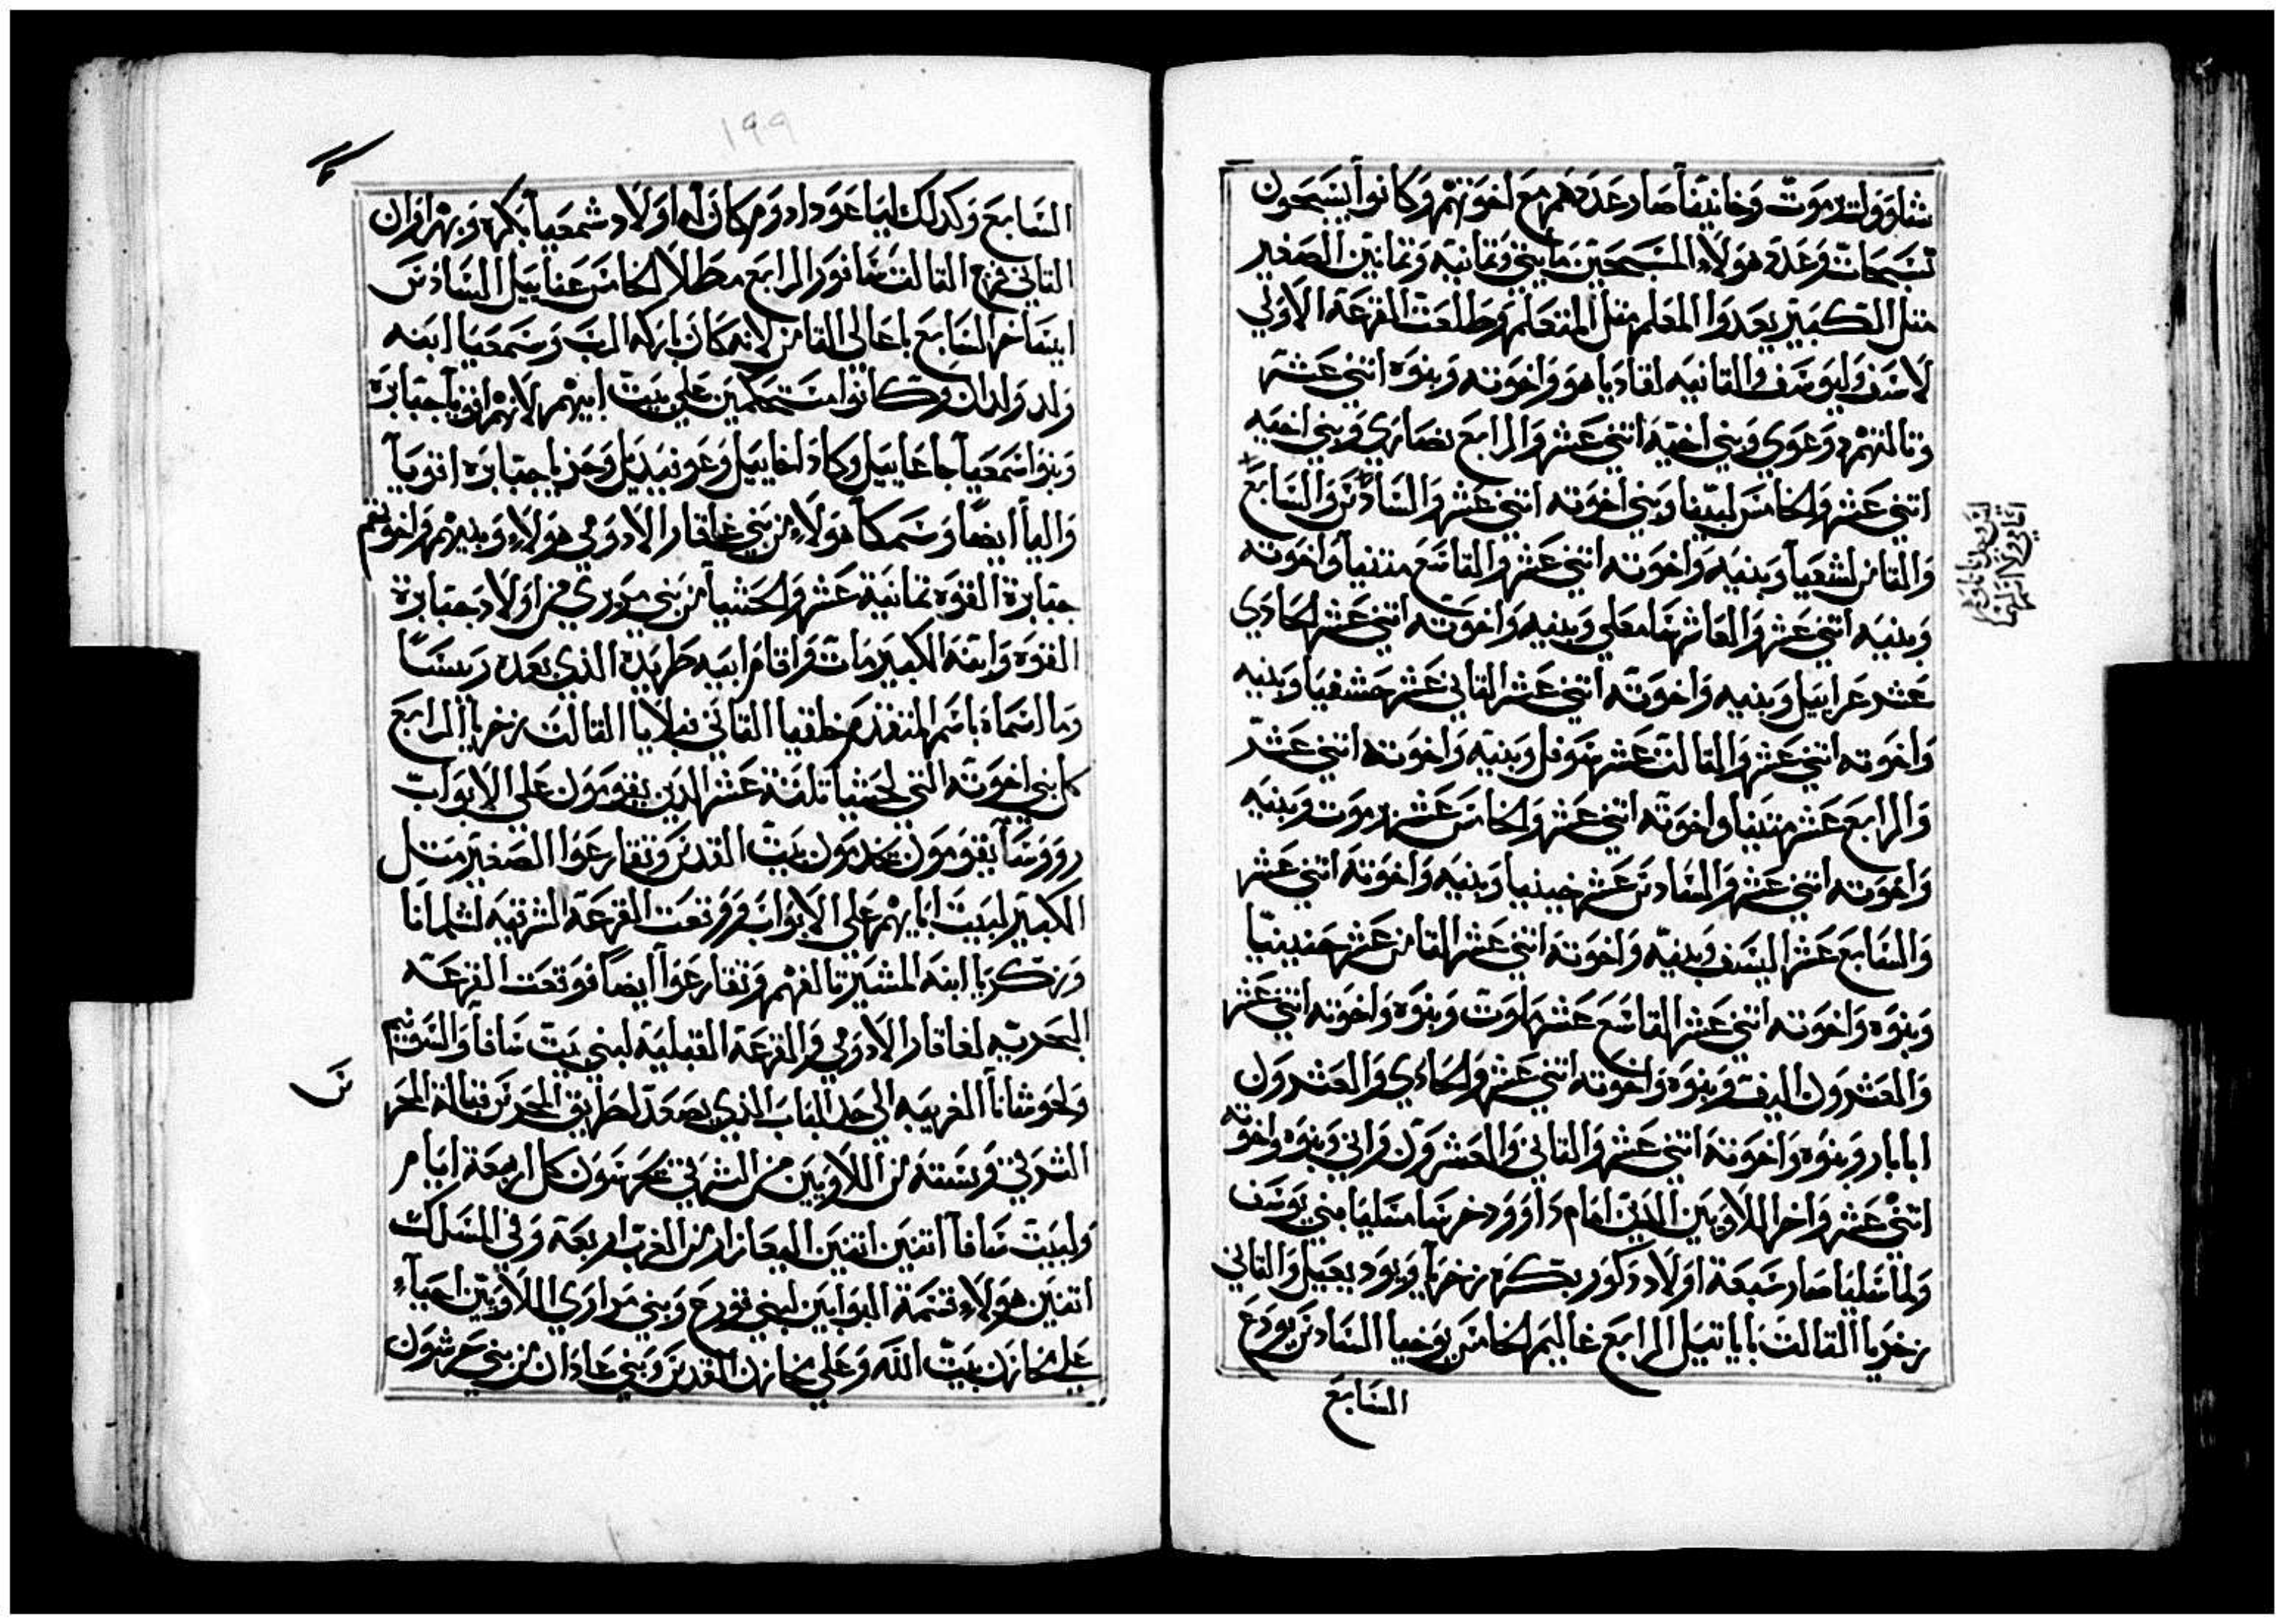 شاوول يرموت وخانيفا صار عددهم مع اخوتهم وكانوا يسبحون
تسبحات وعدة هولاء المسبحين مايتي وثمانيه وثمانين الصغير
مثل الكبير يعدوا المعلم مثل المتعلم وطلعت القرعة الاولي
لاسف وليوسف والثانيه لغاديا هو واخوته وبنوه اثني عشر
وثالثهم وعوي وبني اخيه اثني عشر والرابع نصاري وبني اخيه
اثني عشر والخامس لبيفا وبني اخوته اثني عشر والسادس والسابع
والثامن لشعيا وبنيه واخوته اثني عشر والتاسع متنيا واخوته
وبنيه اثني عشر والعاشر سامعلي وبنيه واخوته اثني عشر الحادي
عشر عزاييل وبنيه واخوته اثني عشر الثاني عشر حشفيا وبنيه
واخوته اثني عشر والثالث عشر نوفل وبنيه واخوته اثني عشر
والرابع عشر متتيا واخوته اثني عشر والخامس عشر يرموت وبنيه
واخوته اثني عشر والسادس عشر خينيا وبنيه واخوته اثني عشر
والسابع عشر اليسف وبنيه واخوته اثني عشر الثامن عشر حنينيا
وبنوه واخوته اثني عشر التاسع عشر ملوت وبنوه واخوته اثني عشر
والعشرون اليف وبنوه واخوته اثني عشر والحادي والعشرون
ابابار وبنوه واخوته اثني عشر والثاني والعشرون راني وبنوه واخوته
اثني عشر واخر اللاويين الذين امام داوود خرسا مسليا بني يوسف
ولماسليا صار سبعة اولاد دكور بكره زخريا ويود يعييل والثاني
زخريا الثالث باياتيل الرابع غاليم الخامس يوخيا السادس يورع
السابع
١٩٩
السابع وكدلك ليا عوداد ودم كان له اولاد شمعيا بكره وبهرافران
الثاني نرع الثالث سانور الرابع مطالا الخامس عنابيل السادس
ايساخر السابع باعالي الثامن لانه كان باركه الرب وشمعيا ابنه
ولد ولدان وكانوا متحكمين علي بيت ابيهم لانهم اقويا جبابره
وبنو اشمعيا جاعاييل وكاد لخاييل وعونيديل وحزيا جبابره اقويا
واليا ايضا وسمكا هولاء من بني غاقار الادومي هولاء وبنيهم واخوتهم
جبابرة القوه ثمانية عشر ولحشيا من بني مرري فمن اولاد جبابرة
القوه وابنه الكبير مات واقام ابيه طريده الذي بعده رييسا
وما اسماه باسم المتقدم خلقيا الثاني نبلايا الثالث زخريا الرابع
كل بني اخوته التي لحشيا تلتة عشر الذين يقومون علي الابواب
رووسا يقومون يخدمون بيت القدس وتقارعوا الصغير مثل
الكبير لبيت اباييهم علي الابواب فوقعت القرعة الشرقيه لشلمانا
وزكريا ابنه المشير ثالثهم وتقارعوا ايضا فوقعت القرعة
البحريه لغاقار الادومي والقرعة القبليه لبني بيت سافا والسوتيم
ولحوشانا الغربيه الي حد الباب الذي يصعد لطريق الحرس قبالة الحر
الشرقي وستة من اللاويين من الشرقي يحرسون كل اربعة ايام
ولبيت سافا اثنين اثنين اليعازار من الغرب اربعة وفي المسلك
اثنين هولاء قسمة البوابين لبني قورح وبني مراري اللاويين احياء
علي خازن بيت الله وعلي مخازن القدس وبني عادان من بني جرشون